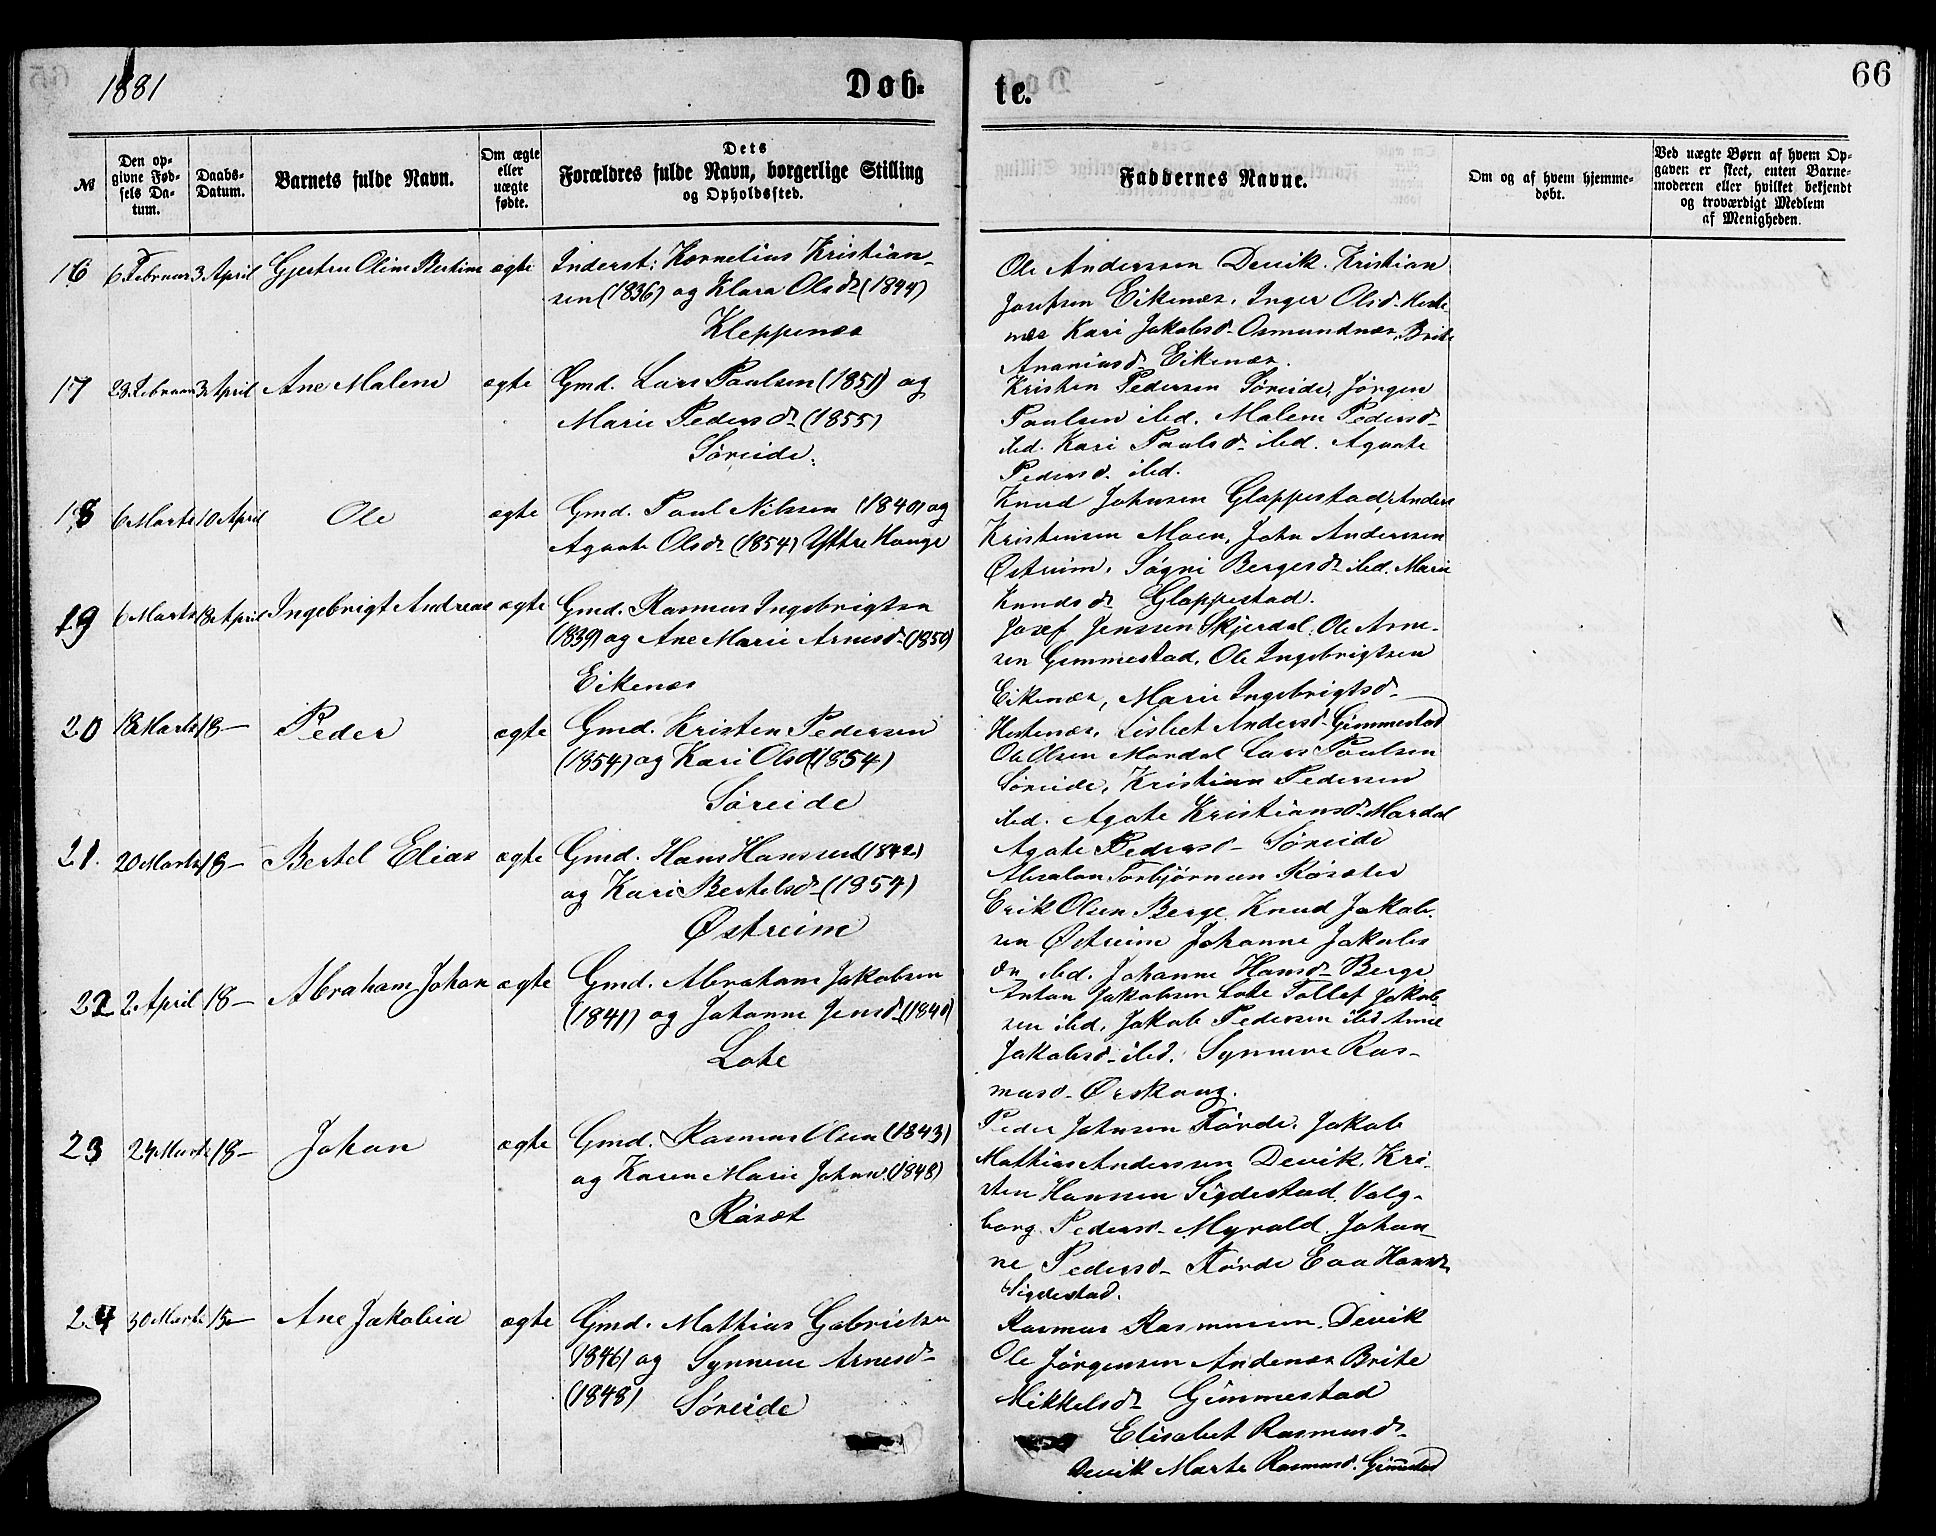 1881
Døb-
te.
66
№
Den op-
givne Fød-
sels Da-
tum.
Daabs-
Datum.
Barnets fulde Navn.
Om ægte
eller
uægte
fødte.
Dets
Forældres fulde Navn, borgerlige Stilling
og Opholdssted.
Faddernes Navne.
Om og af hvem hjemme-
døbt.
Ved uægte Børn af hvem Op-
gaven er skeet, enten Barne-
moderen eller hvilket bekjendt
og troværdigt Medlem
af Menigheden.
16 6 Februar 3 April Gjertru Oline Bertine ægte Inderst: Kornelius Kristian-
sen (1836) og Klara Olsdr (1844)
Kleppenæs
Ole Anderssen Devik. Kristian
Josefsen Eikenæs, Inger Olsd- Heste
næs Kari Jakobsd- Osmundnæs, Brite
Ananiasd. Eikenæs.
17 28 Februar 3 April Ane Malene ægte Gmd. Lars Paulsen (1851) og
Marie Pedersdr (1855)
Søreide.
Kristen Pedersen Søreide, Jørgen
Paulsen ibd. Malene Pedersd-
ibd. Kari Paulsd- ibd. Agaate
Pedersd. ibd.
18 6 Marts 10 April Ole ægte Gmd. Paul Nilssen (1840) og
Agaate Olsdr (1854) Yttre Hauge
Knud Johnsen Glappestad, Anders
Kristensen Moen, John Anderssen
Østreim, Søgni Bergesdr ibd. Marie
Knudsdr Glappestad.
19 6 Marts 18 April Ingebrigt Andreas ægte Gmd. Rasmus Ingebrigtsen
(1839) og Ane Marie Arnesd- (1850)
Eikenæs
Josef Jenssen Skjerdal, Ole Arne-
sen Gimmestad, Ole Ingebrigtsen
Eikenæs, Marie Ingebrigtsd-
Hestenæs, Lisbet Andersd- Gimmestad
20 18 Marts 18- Peder ægte Gmd. Kristen Pedersen
(1854) og Kari Olsd (1854)
Søreide
Ole Olsen Mardal Lars Paulsen
Søreide, Kristian Pedersen
ibd. Agate Kristiansd- Mardal
Agate Pedersd- Søreide
21. 20 Marts 18- Bertel Elias ægte Gmd. Hans Hanssen (1842)
og Kari Bertelsd- (1854)
Østreim
Absalon Torbjørnsen Røsæter
Erik Olsen Berge, Knud Jakob-
sen Østreim Johanne Jakobs
dr ibd. Johanne Hansdr Berge
22 2 April 18- Abraham Johan ægte Gmd. Abraham Jakobsen
(1841) og Johanne Jensd- (1840)
Lote
Anton Jakobsen Lote Tollef Jakob-
sen ibd, Jakob Pedersen ibd Anne
Jakobsd- ibd. Synneve Ras-
musd- Ørskaug.
23 24 Marts 18- Johan ægte Gmd. Rasmus Olsen (1843)
og Karen Marie Johnsd. (1848)
Røsæt
Peder Johnsen Førde, Jakob
Mathias Anderssen Devik, Kri-
sten Hanssen Sigdestad, Valg-
borg Pedersd- Myrold, Johan-
ne Pedersd- Førde Eva Hansdr
Sigdestad.
24 30 Marts 15- Ane Jakobia ægte Gmd. Mathias Gabrielsen
(1846) og Synneve Arnesd-
(1848) Søreide
Rasmus Rasmussen. Devik
Ole Jørgensen Andenæs Brite
Mikkelsdr Gimmestad
Elisabet Rasmusdr
Devik Marte Rasmusd. Gimmestad